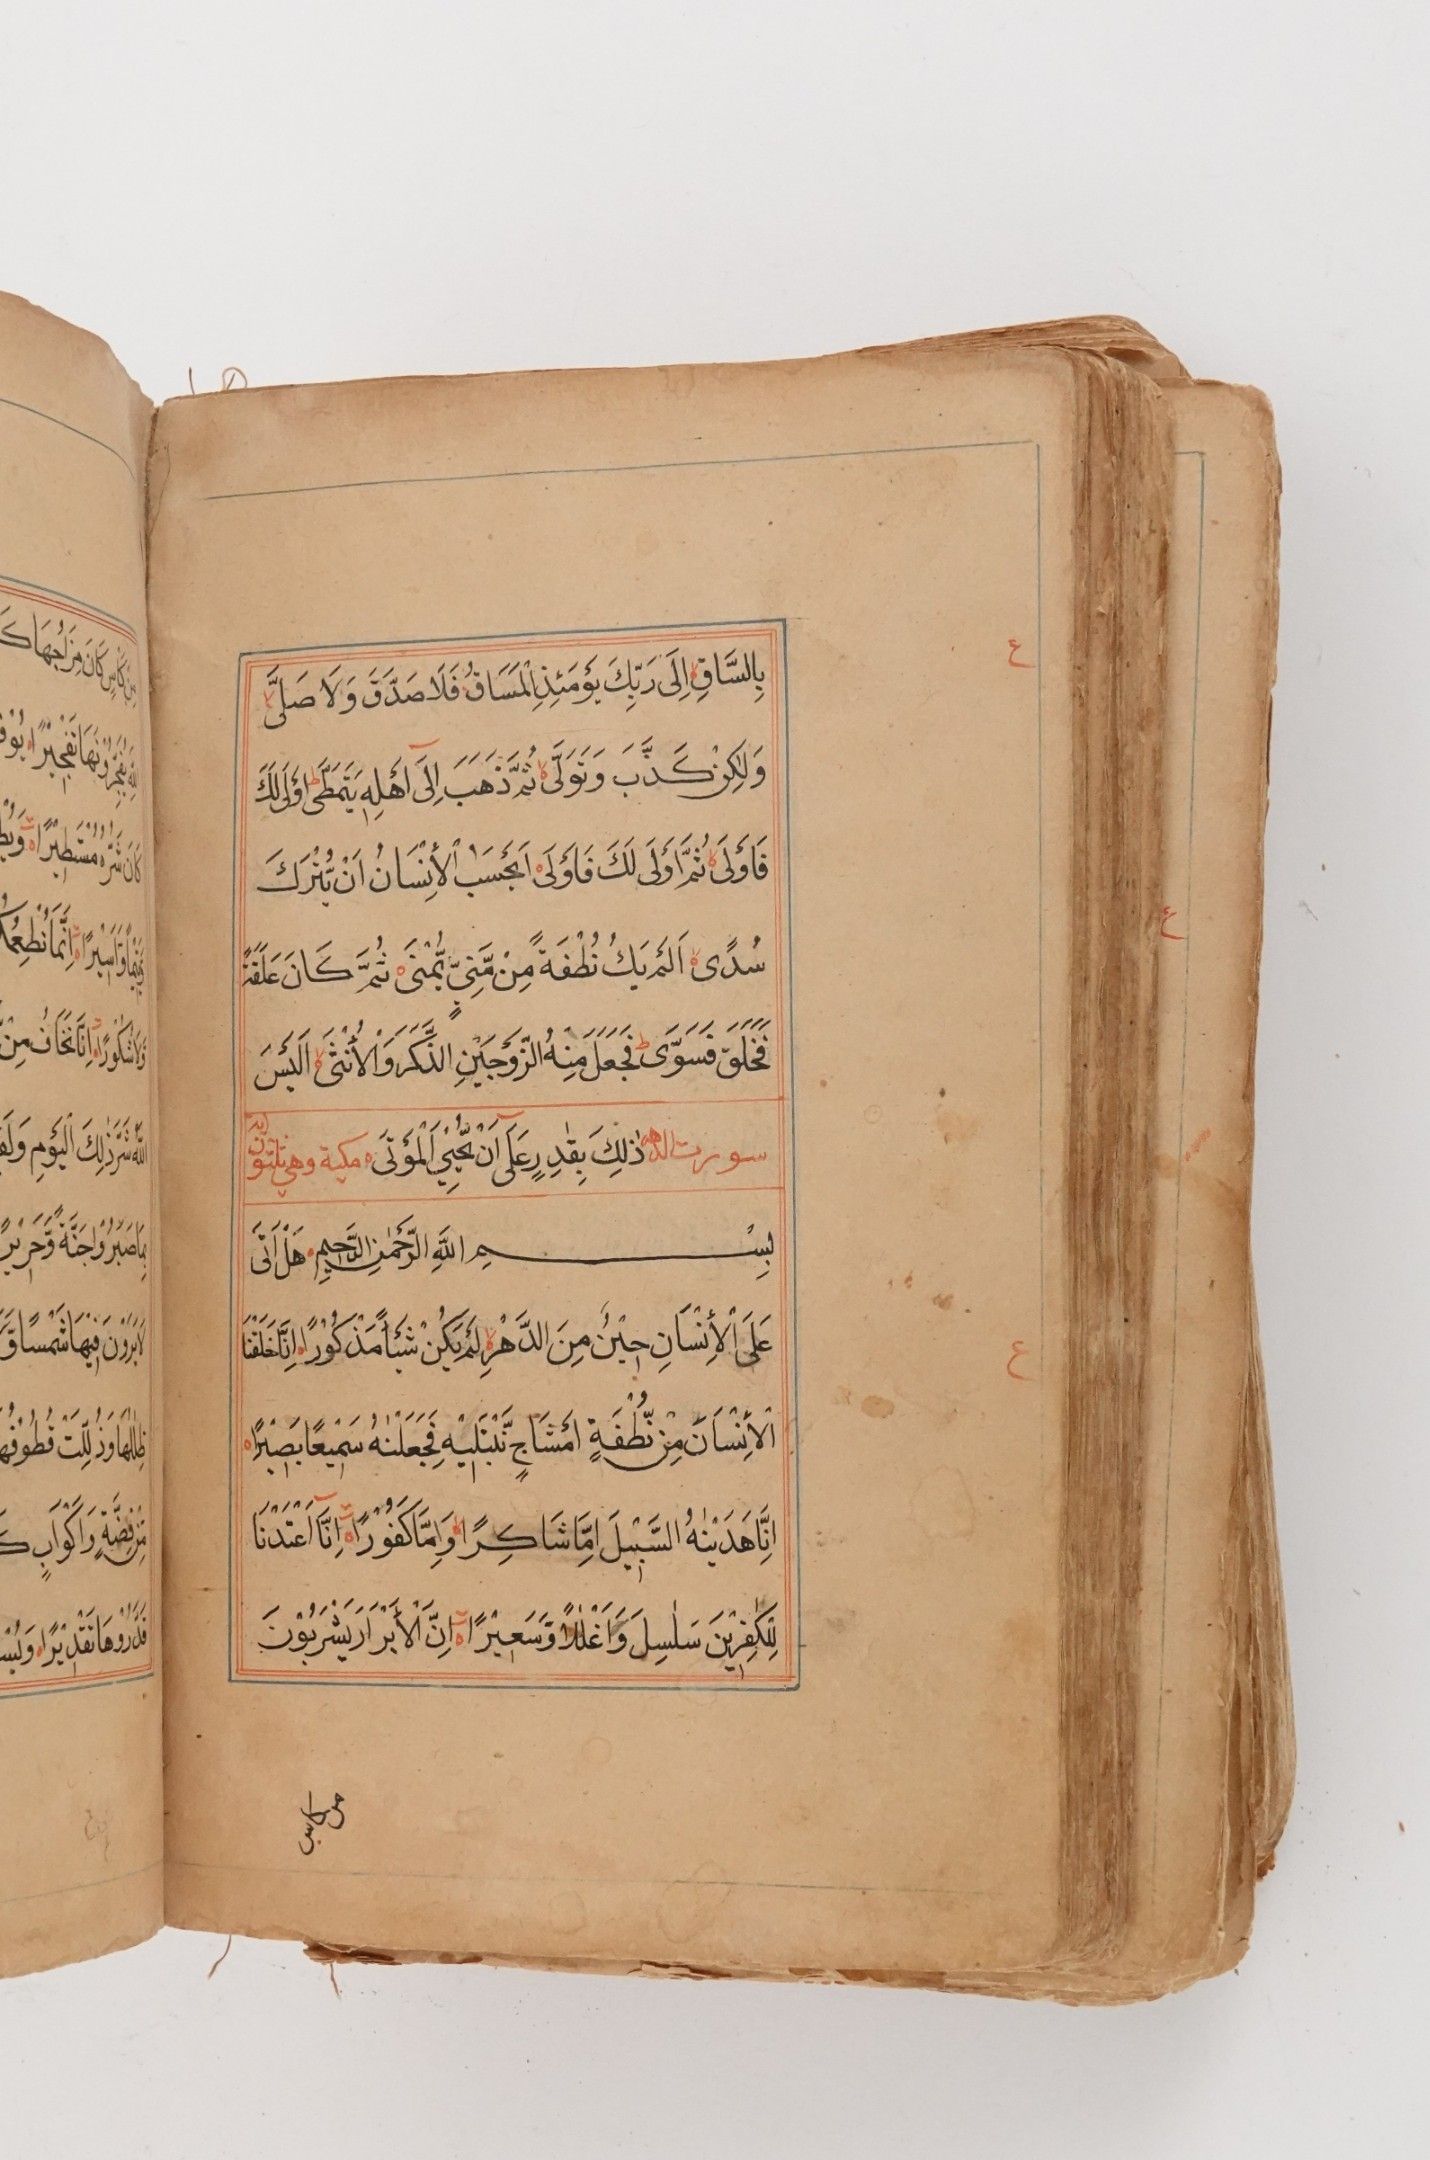 بِالسَّاقِ اِلَى رَبِّكَ يَوْمَئِذِ الْمَسَاقُ فَلَا صَدَّقَ وَلَا صَلَّى
وَلٰكِنْ كَذَّبَ وَتَوَلَّى ثُمَّ ذَهَبَ اِلَى اَهْلِهٖ يَتَمَطَّى اَوْلَى لَكَ
فَاَوْلَى ثُمَّ اَوْلَى لَكَ فَاَوْلَى اَيَحْسَبُ الْاِنْسَانُ اَنْ يُّتْرَكَ
سُدًى اَلَمْ يَكُ نُطْفَةً مِنْ مَّنِيٍّ يُّمْنَى ثُمَّ كَانَ عَلَقَةً
فَخَلَقَ فَسَوَّى فَجَعَلَ مِنْهُ الزَّوْجَيْنِ الذَّكَرَ وَالْاُنْثَى اَلَيْسَ
سورت الدهر ذٰلِكَ بِقٰدِرٍ عَلَى اَنْ يُّحْيِيَ الْمَوْتَى مكية وهي ثلثون
بِسْمِ اللّٰهِ الرَّحْمٰنِ الرَّحِيْمِ هَلْ اَتَى
عَلَى الْاِنْسَانِ حِيْنٌ مِنَ الدَّهْرِ لَمْ يَكُنْ شَيْأً مَذْكُوْرًا اِنَّا خَلَقْنَا
الْاِنْسَانَ مِنْ نُّطْفَةٍ اَمْشَاجٍ نَّبْتَلِيْهِ فَجَعَلْنٰهُ سَمِيْعًا بَصِيْرًا
اِنَّا هَدَيْنٰهُ السَّبِيْلَ اِمَّا شَاكِرًا وَاِمَّا كَفُوْرًا اِنَّا اَعْتَدْنَا
لِلْكٰفِرِيْنَ سَلٰسِلَ وَاَغْلٰلًا وَّسَعِيْرًا اِنَّ الْاَبْرَارَ يَشْرَبُوْنَ
من كاس
ع
ع
ع
مِنْ كَاْسٍ كَانَ مِزَاجُهَا
اللّٰهِ يُفَجِّرُوْنَهَا تَفْجِيْرًا
كَانَ شَرُّهٗ مُسْتَطِيْرًا
وَّاَسِيْرًا اِنَّمَا نُطْعِمُكُمْ
وَّلَا شُكُوْرًا اِنَّا نَخَافُ مِنْ
اللّٰهُ شَرَّ ذٰلِكَ الْيَوْمِ
بِمَا صَبَرُوْا جَنَّةً وَّحَرِيْرًا
لَا يَرَوْنَ فِيْهَا شَمْسًا
ظِلٰلُهَا وَذُلِّلَتْ قُطُوْفُهَا
مِّنْ فِضَّةٍ وَّاَكْوَابٍ
قَدَّرُوْهَا تَقْدِيْرًا